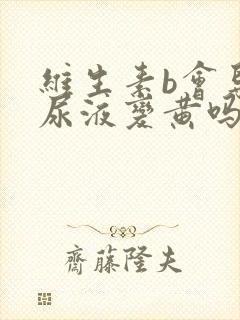 維生素b會
尿液變黄吗
齋藤隆夫